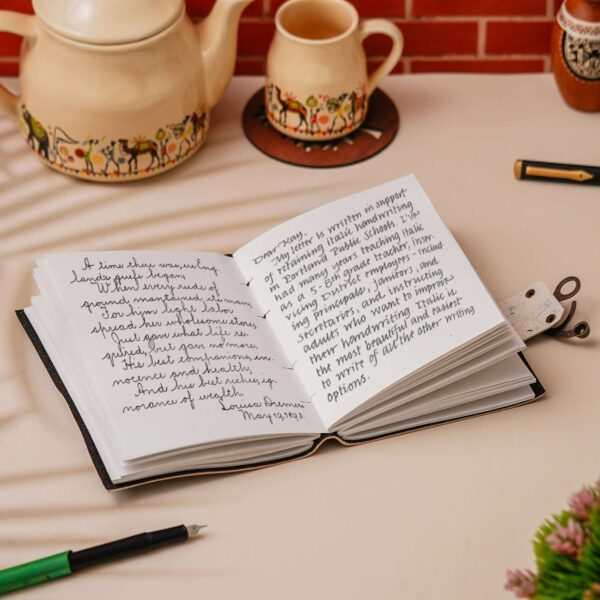 A time there was, ere Eng-
land's griefs began,
When every rude of
ground maintained its man,
For him light labor
spread her wholesome store,
Just gave what life re-
quired, but gave no more,
His best companions, in-
nocence and health,
And his best riches, ig-
norance of wealth.
Louisa
May 19, 1893.
Dear Kay,
My letter is written in support
of retaining italic handwriting
in Portland Public Schools. I've
had many years teaching italic
as a 5-8th grade teacher, inser-
vicing District employees - includ-
ing principals, janitors, and
secretaries, and instructing
adults who want to improve
their handwriting. Italic is
the most beautiful and easiest
to write of all the other writing
options.